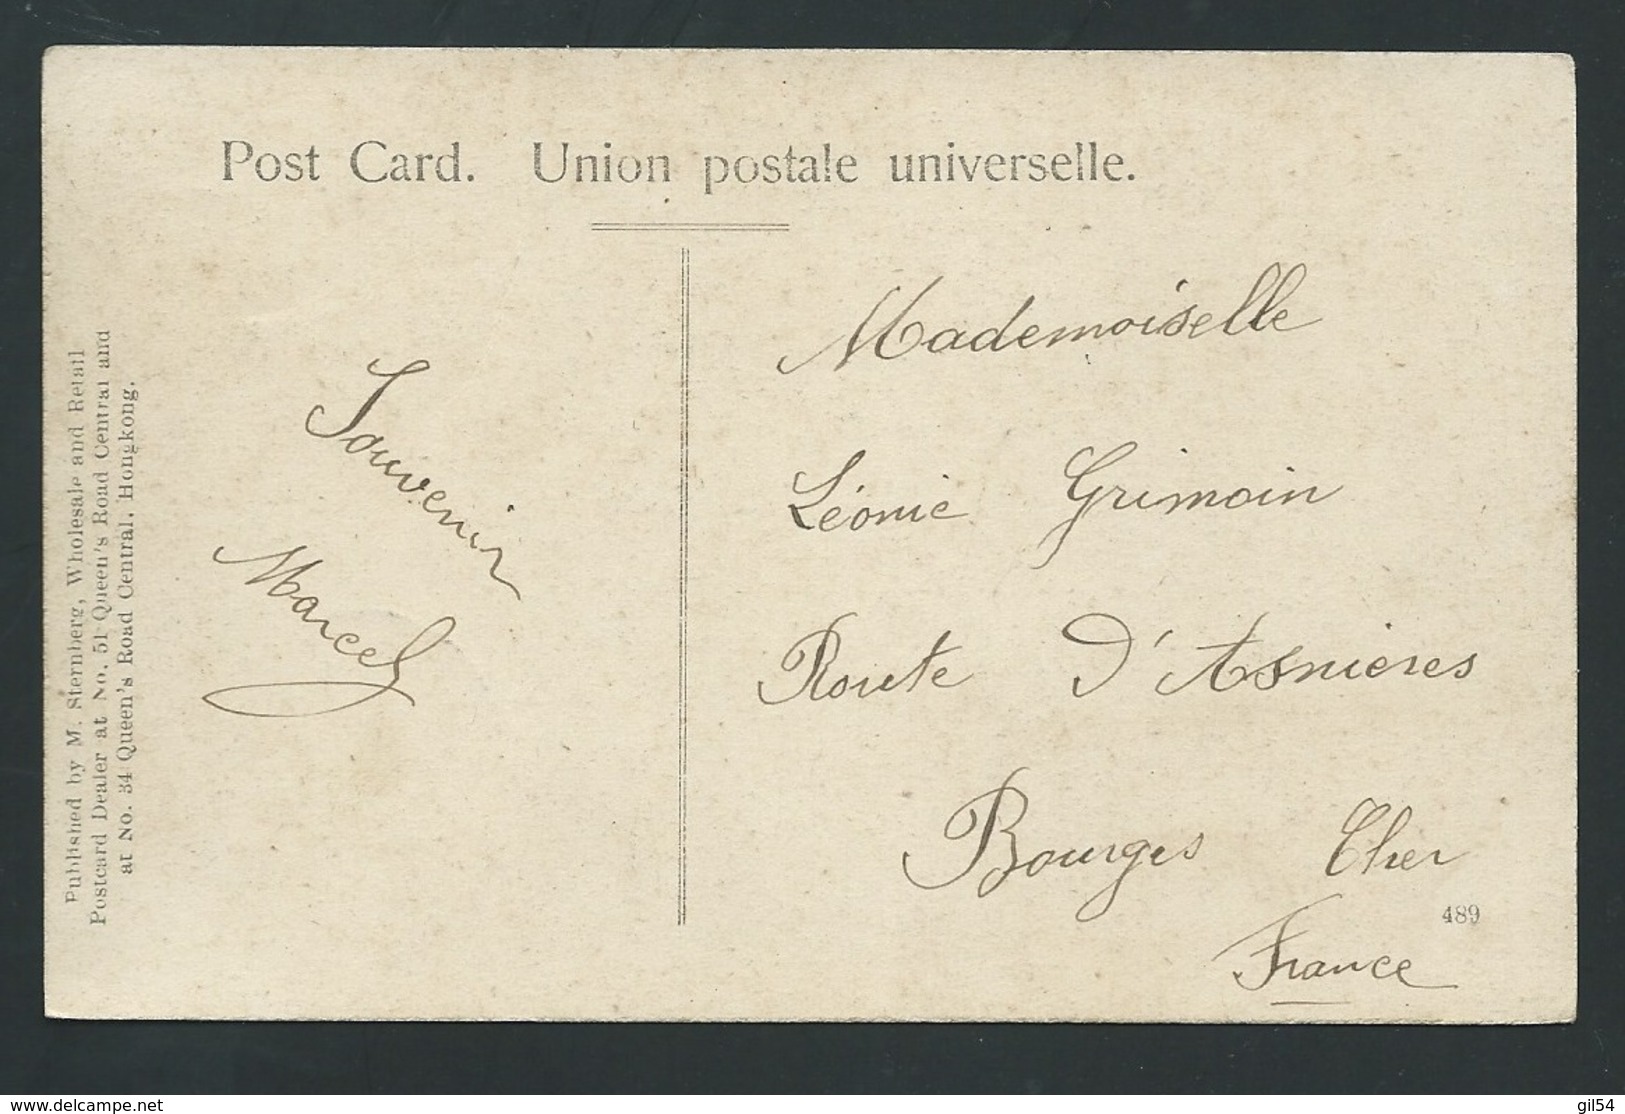 Post Card. Union postale universelle.
Published by M. Sternberg, Wholesale and Retail
Postcard Dealer at No. 51 Queen's Road Central and
at No. 34 Queen's Road Central, Hongkong.
Souvenir
Marcel
Mademoiselle
Léonie Grimoin
Route d'Asnieres
Bourges Cher
489
France
www.delcampe.net
gil54